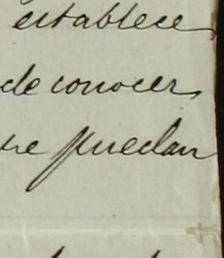 establece
de conocer
ue puedan